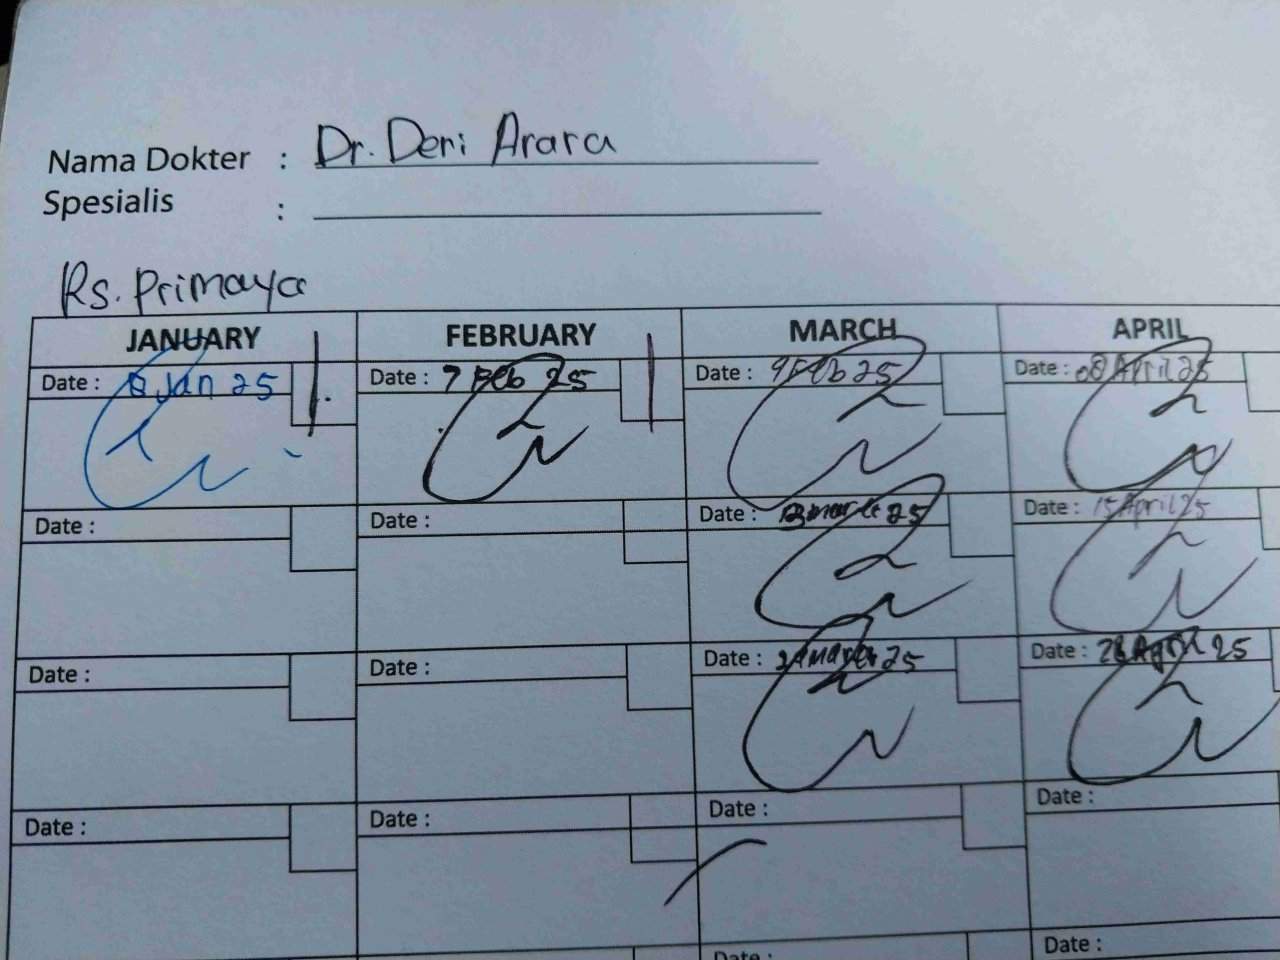 Nama Dokter : Dr. Deri Arara
Spesialis :
Rs. Primaya
JANUARY FEBRUARY MARCH APRIL
Date : 8 Jan 25 Date : 7 Feb 25 Date : 9 Feb 25 Date : 08 April 25
Date : Date : Date : 25 Date : 15 April 25
Date : Date : Date : 25 Date : April 25
Date : Date : Date : Date :
Date : Date :